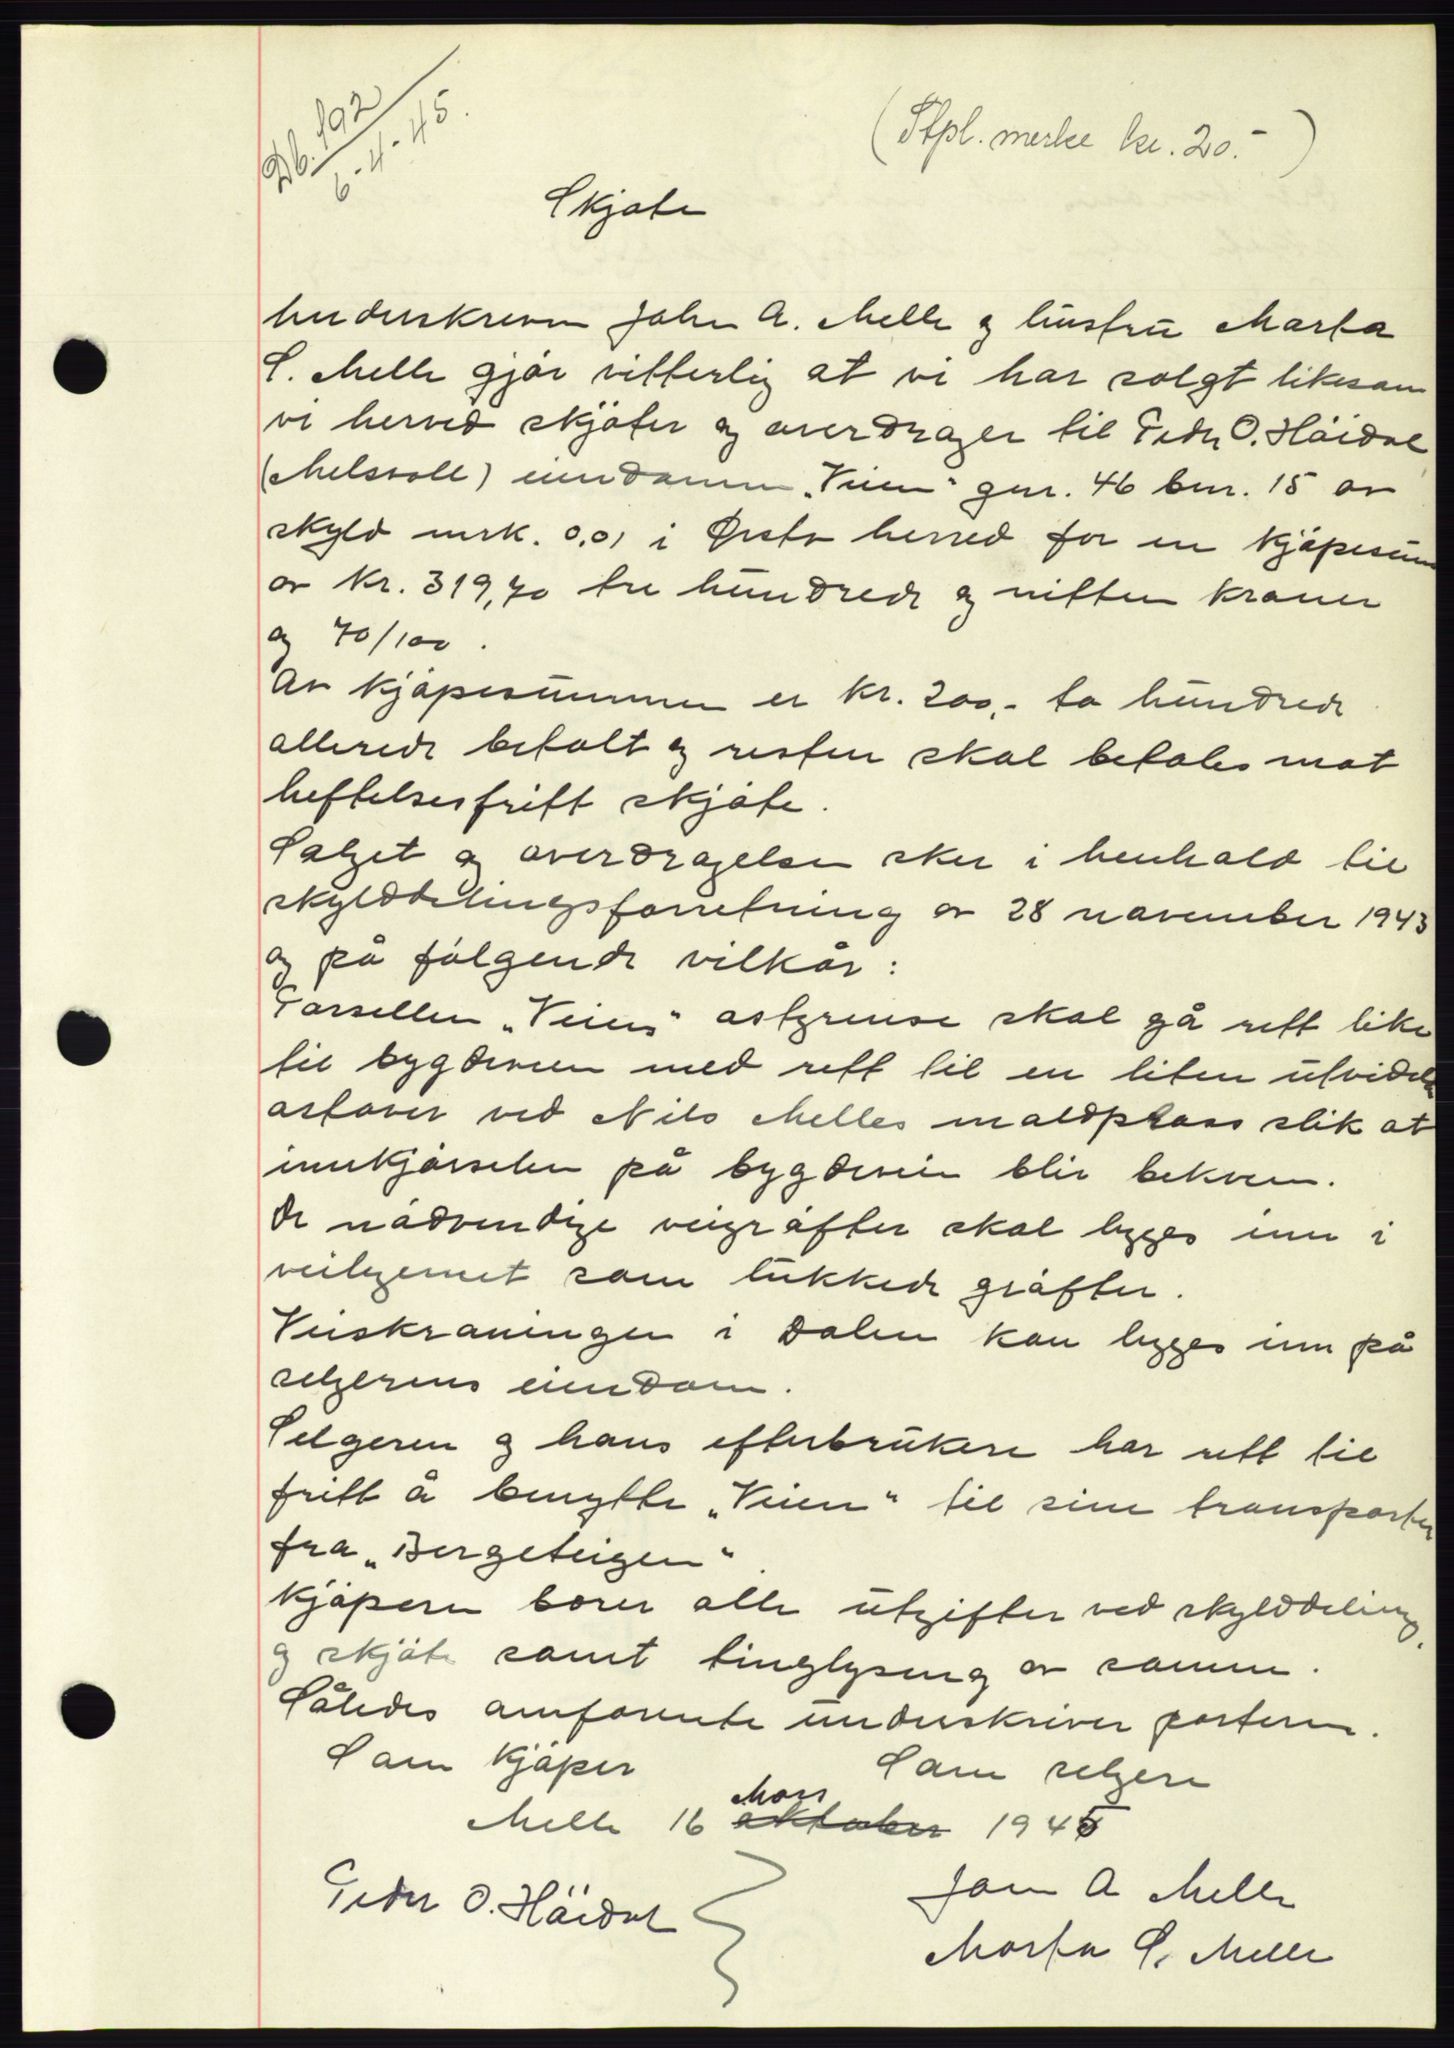 Db. 192
6-4-45.
(Stpl. merke kr. 20.-)
Skjøte
Underskreven John A. Melle og hustru Marta
S. Melle gjør vitterlig at vi har solgt likesom
vi herved skjøter og overdrager til Peder O. Höidal
(Melsvoll) eiendomen „Veien“ gnr. 46 bnr. 15 av
skyld mrk. 0,01 i Ørsta herred for en kjøpesum
av kr. 319,70 tre hundrede og nitten kroner
og 70/100.
Av kjøpesummen er kr. 200,- to hundrede
allerede betalt og resten skal betales mot
heftelsesfritt skjøte.
Salget og overdragelsen sker i henhold til
skylddelingsforretning av 28 november 1943
og på følgende vilkår:
Parsellen „Veiens“ østgrense skal gå rett like
til bygdeveien med rett til en liten utvidelse
østover ved Nils Melles moldplass slik at
innkjørselen på bygdevein blir bekvem.
De nødvendige veigrøfter skal legges inn i
veilegemet som lukkede grøfter.
Veiskråningen i Dalen kan legges inn på
selgerens eiendom.
Selgeren og hans efterbrukere har rett til
fritt å benytte „Veien“ til sine transporter
fra „Bergeteigen“.
Kjøperen bærer alle utgifter ved skylddeling,
og skjøte samt tinglysing av samme.
Således omforente underskriver partene.
Som kjøper Som selgere
Melle 16 oktober Mars 1945
Peder O. Höidal
John A Melle
Marta S. Melle